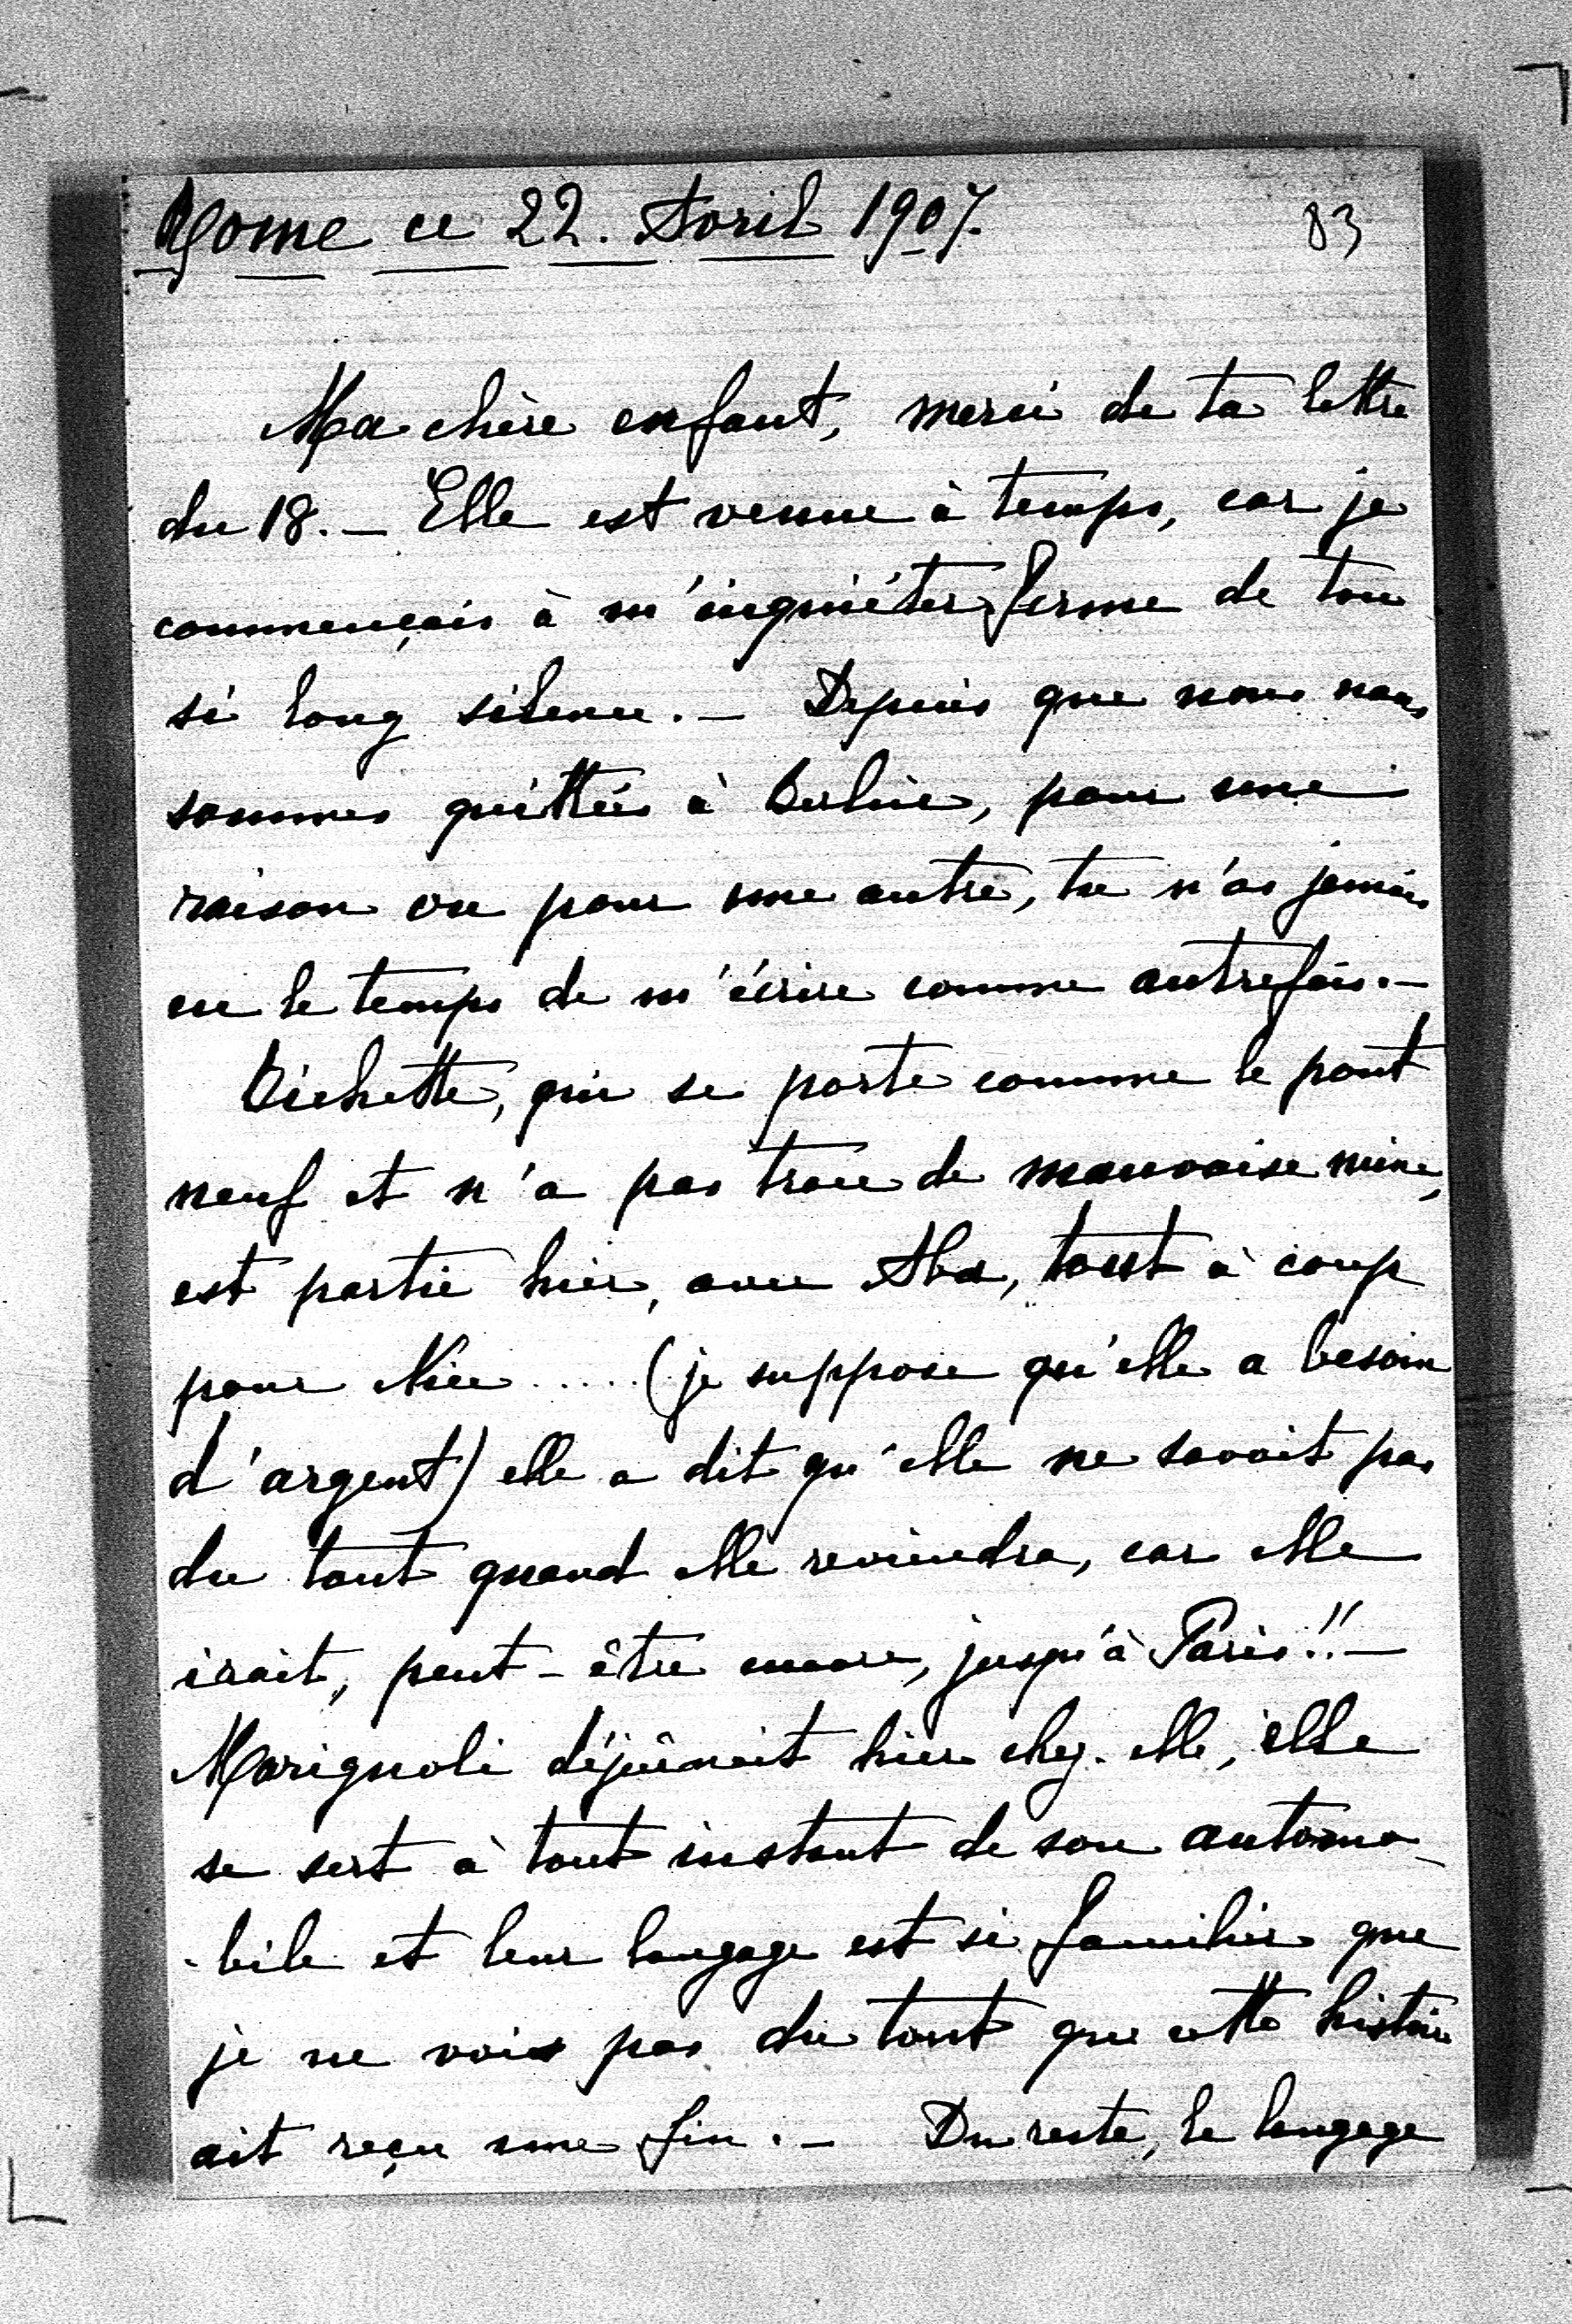 Rome ce 22. Avril 1907.
83
Ma chère enfant, merci de ta lettre
du 18. – Elle est venue à temps, car je
commençais à m'inquiéter ferme de ton
si long silence. – Depuis que nous nous
sommes quittés à Berlin, pour une
raison ou pour une autre, tu n'as jamais
eu le temps de m'écrire comme autrefois. –
Bichette, qui se porte comme le pont
neuf et n'a pas trace de mauvaise mine,
est partie hier, avec Aba, tout à coup
pour Nice ..... (je suppose qu'elle a besoin
d'argent) elle a dit qu'elle ne savait pas
du tout quand elle reviendra, car elle
irait, peut-être encore, jusqu'à Paris!! –
Marignoli déjeûnait hier chez elle, elle
se sert à tout instant de son automo-
-bile et leur langage est si familier que
je ne vois pas du tout que cette histoire
ait reçu une fin. – Du reste, le langage